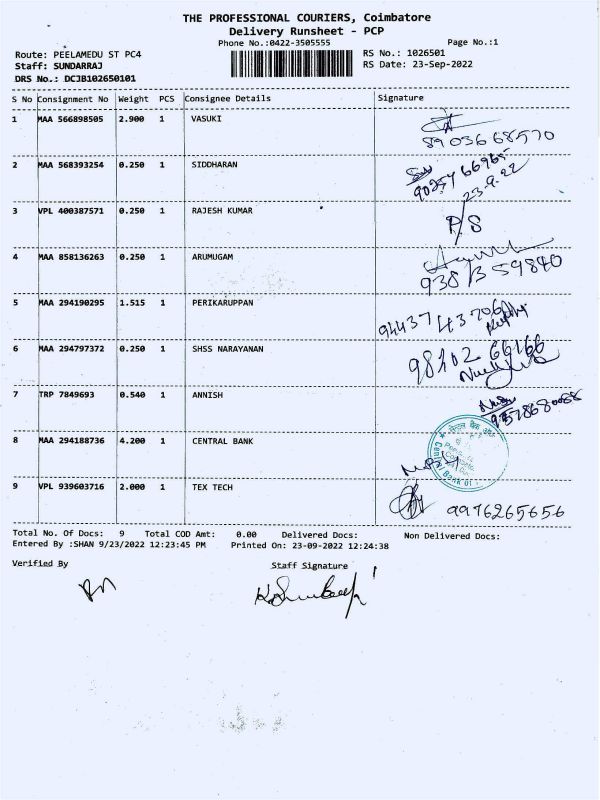 THE PROFESSIONAL COURIERS, Coimbatore
Delivery Runsheet - PCP
Phone No.:0422-3505555 Page No.:1
Route: PEELAMEDU ST PC4 RS No.: 1026501
Staff: SUNDARRAJ RS Date: 23-Sep-2022
DRS No.: DCJB102650101
S No Consignment No Weight PCS Consignee Details Signature
1 MAA 566898505 2.900 1 VASUKI
8903668570
2 MAA 568393254 0.250 1 SIDDHARAN
23.9.22
3 VPL 400387571 0.250 1 RAJESH KUMAR
P/S
4 MAA 858136263 0.250 1 ARUMUGAM
9381359840
5 MAA 294190295 1.515 1 PERIKARUPPAN
9443743706
6 MAA 294797372 0.250 1 SHSS NARAYANAN
98102 66166
7 TRP 7849693 0.540 1 ANNISH
8 MAA 294188736 4.200 1 CENTRAL BANK
Central Bank Of
9 VPL 939603716 2.000 1 TEX TECH
9976265656
Total No. Of Docs: 9 Total COD Amt: 0.00 Delivered Docs: Non Delivered Docs:
Entered By :SHAN 9/23/2022 12:23:45 PM Printed On: 23-09-2022 12:24:38
Verified By Staff Signature